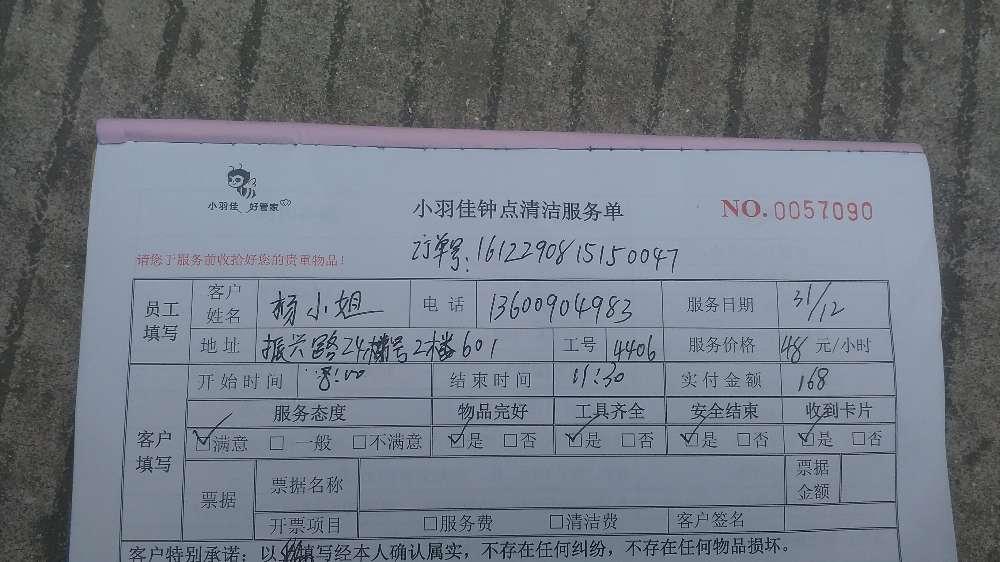 小羽佳 好管家
小羽佳钟点清洁服务单
NO.0057090
订单号:1612290815150047
请您于服务前收拾好您的贵重物品!
员工填写 客户姓名 杨小姐 电话 13600904983 服务日期 31/12
地址 振兴路24号2楼601 工号 4406 服务价格 48元/小时
开始时间 8:00 结束时间 11:30 实付金额 168
客户填写 服务态度 物品完好 工具齐全 安全结束 收到卡片
☑满意 □一般 □不满意 ☑是 □否 ☑是 □否 ☑是 □否 ☑是 □否
票据 票据名称 票据金额
开票项目 □服务费 □清洁费 客户签名
客户特别承诺:以 填写经本人确认属实,不存在任何纠纷,不存在任何物品损坏。